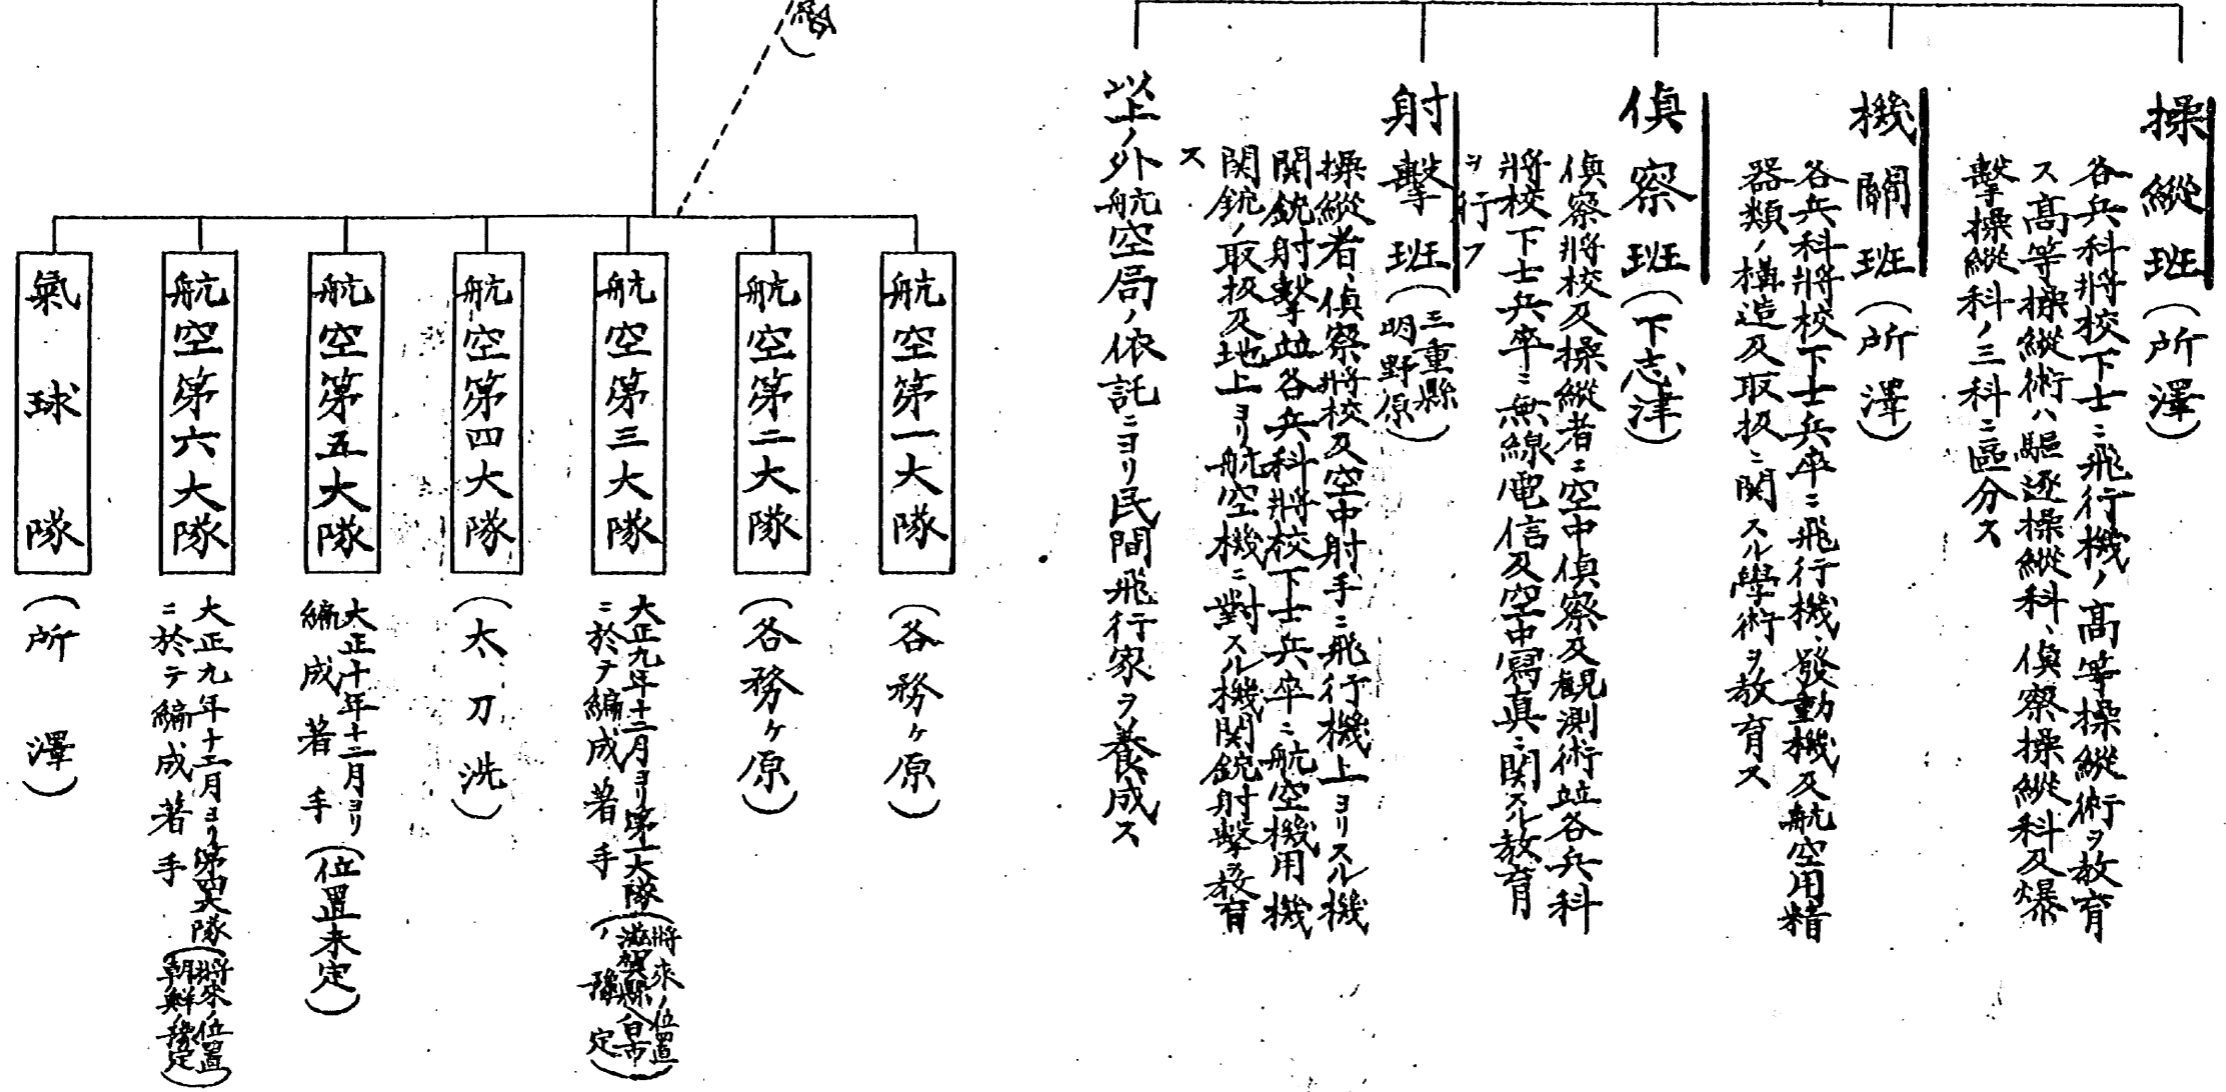 操縱班(所澤)
各兵科將校下士ニ飛行機ノ高等操縱術ヲ教育
ス高等操縱術ハ驅逐操縱科、偵察操縱科及爆
擊操縱科ノ三科ニ區分ス
機關班(所澤)
各兵科將校下士兵卒ニ飛行機、發動機及航空用精
器類ノ構造及取扱ニ関スル學術ヲ教育ス
偵察班(下志津)
偵察將校及操縱者ニ空中偵察及観測術竝各兵科
將校下士兵卒ニ無線電信及空中寫真ニ関スル教育
ヲ行フ
射擊班(三重縣
明野原)
操縱者、偵察將校及空中射手ニ飛行機上ヨリスル機
関銃射擊竝各兵科將校下士兵卒ニ航空機用機
関銃ノ取扱及地上ヨリ航空機ニ對スル機関銃射擊ヲ教育
ス
以上ノ外航空局ノ依託ニヨリ民間飛行家ヲ養成ス
航空第一大隊(各務ヶ原)
航空第二大隊(各務ヶ原)
航空第三大隊
大正九年十二月ヨリ第一大隊
ニ於テ編成著手
(將來ノ位置
滋賀縣八日市
ノ豫定)
航空第四大隊(太刀洗)
航空第五大隊
大正十年十二月ヨリ
編成著手(位置未定)
航空第六大隊
大正九年十二月ヨリ第四大隊
ニ於テ編成著手
(將來ノ位置
朝鮮ノ豫定)
氣球隊(所澤)